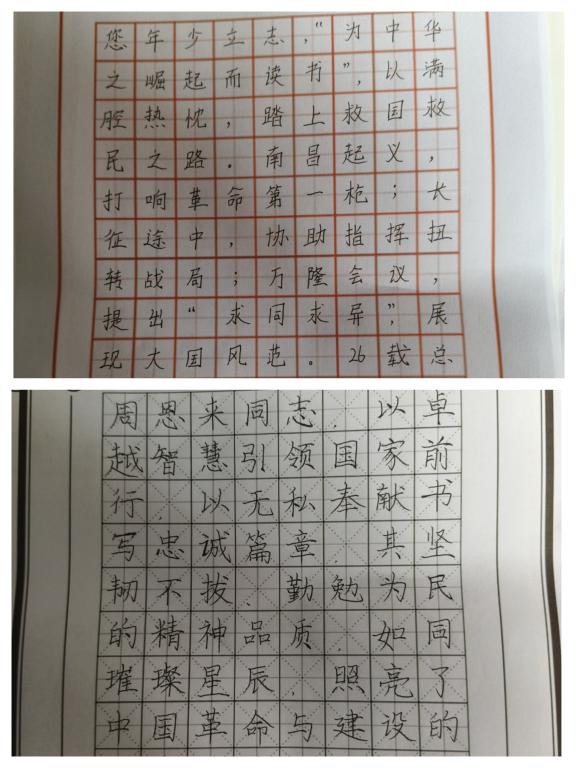 您年少立志，“为中华
之崛起而读书”，以满
腔热忱，踏上救国救
民之路。南昌起义，
打响革命第一枪；长
征途中，协助指挥扭
转战局；万隆会议，
提出“求同求异”，展
现大国风范。26载总
周恩来同志，以卓
越智慧引领国家前
行，以无私奉献书
写忠诚篇章，其坚
韧不拔、勤勉为民
的精神品质，如同
璀璨星辰，照亮了
中国革命与建设的